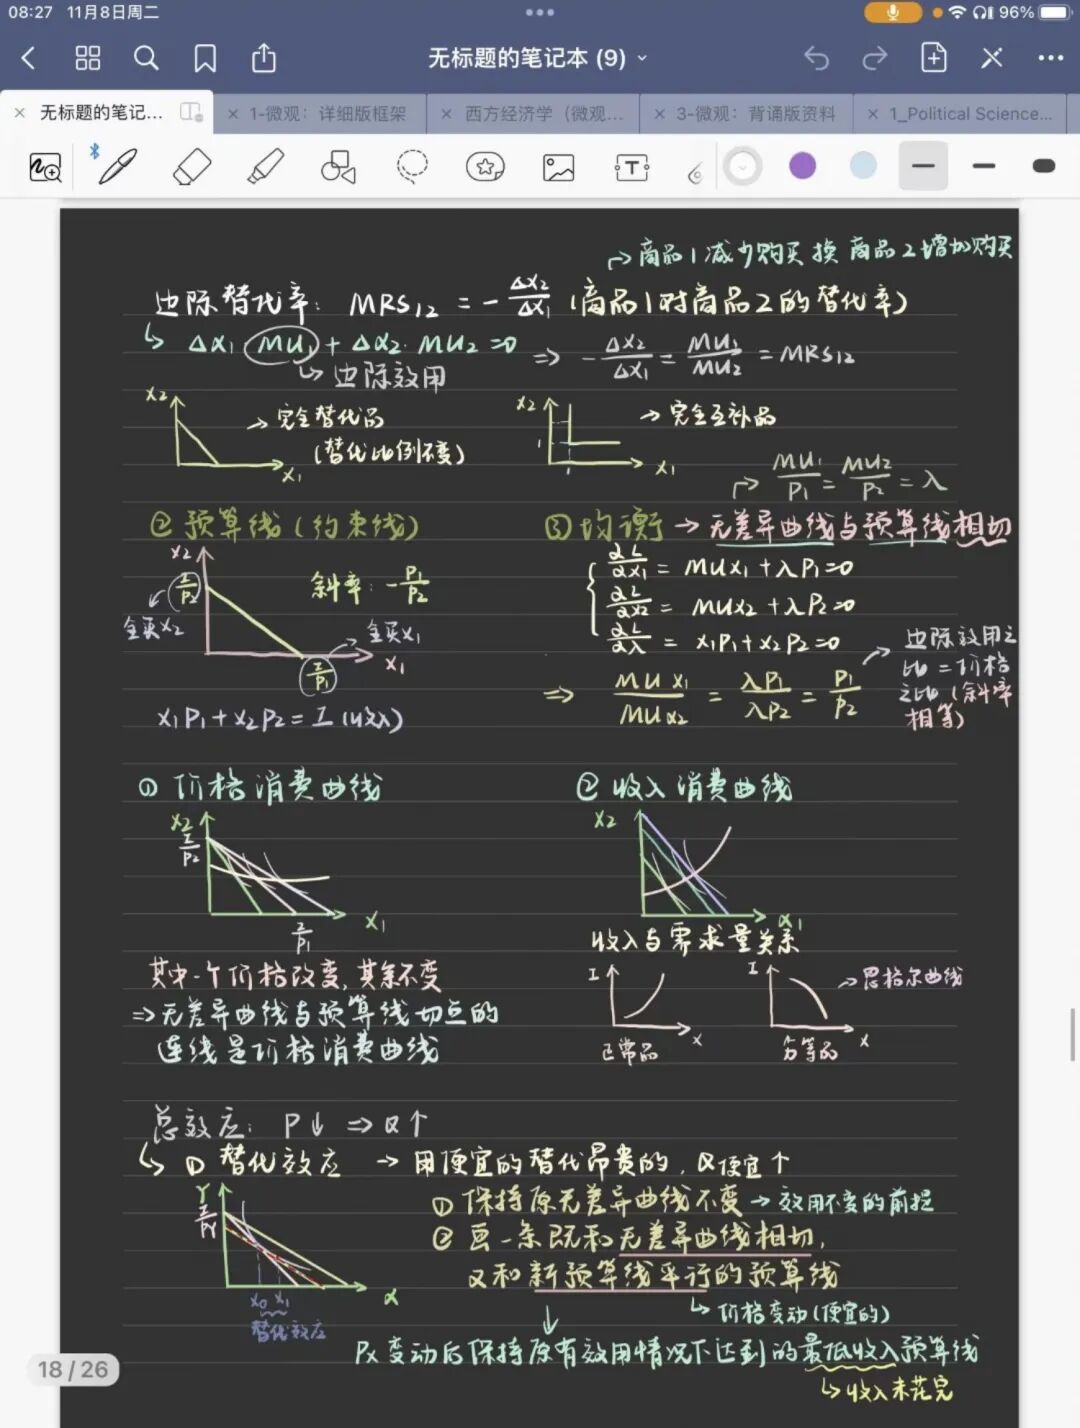 08:27 11月8日周二
96%
无标题的笔记本 (9)
无标题的笔记...
1-微观：详细版框架
西方经济学（微观...
3-微观：背诵版资料
1_Political Science...
→商品1减少购买 换 商品2增加购买
边际替代率: MRS12 = -Δx2/Δx1 (商品1对商品2的替代率)
↳ Δx1 MU1 + Δx2·MU2 =0 => -Δx2/Δx1 = MU1/MU2 = MRS12
↳ 边际效用
x2
→ 完全替代品
(替代比例不变)
x1
x2
→ 完全互补品
1
1
x1
→ MU1/P1 = MU2/P2 = λ
② 预算线(约束线)
x2
I/P2
全买x2
斜率: -P1/P2
全买x1
x1
I/P1
x1P1+x2P2=I(收入)
③ 均衡 → 无差异曲线与预算线相切
∂L/∂x1 = MUx1+λP1=0
∂L/∂x2 = MUx2+λP2=0
∂L/∂λ = x1P1+x2P2=0
=> MUx1/MUx2 = λP1/λP2 = P1/P2
边际效用之
比=价格
之比(斜率
相等)
① 价格消费曲线
x2
I/P2
x1
I/P1
其中一个价格改变,其余不变
=>无差异曲线与预算线切点的
连线是价格消费曲线
② 收入消费曲线
x2
x1
收入与需求量关系
I
x
正常品
I
→恩格尔曲线
x
劣等品
总效应: P↓ => Q↑
↳ ① 替代效应 → 用便宜的替代昂贵的, Q便宜↑
Y
I/PY
x
x0 x1
替代效应
① 保持原无差异曲线不变 → 效用不变的前提
② 画一条既和无差异曲线相切,
又和新预算线平行的预算线
↳ 价格变动(便宜的)
Px变动后保持原有效用情况下达到的最低收入预算线
↳收入未花完
18 / 26